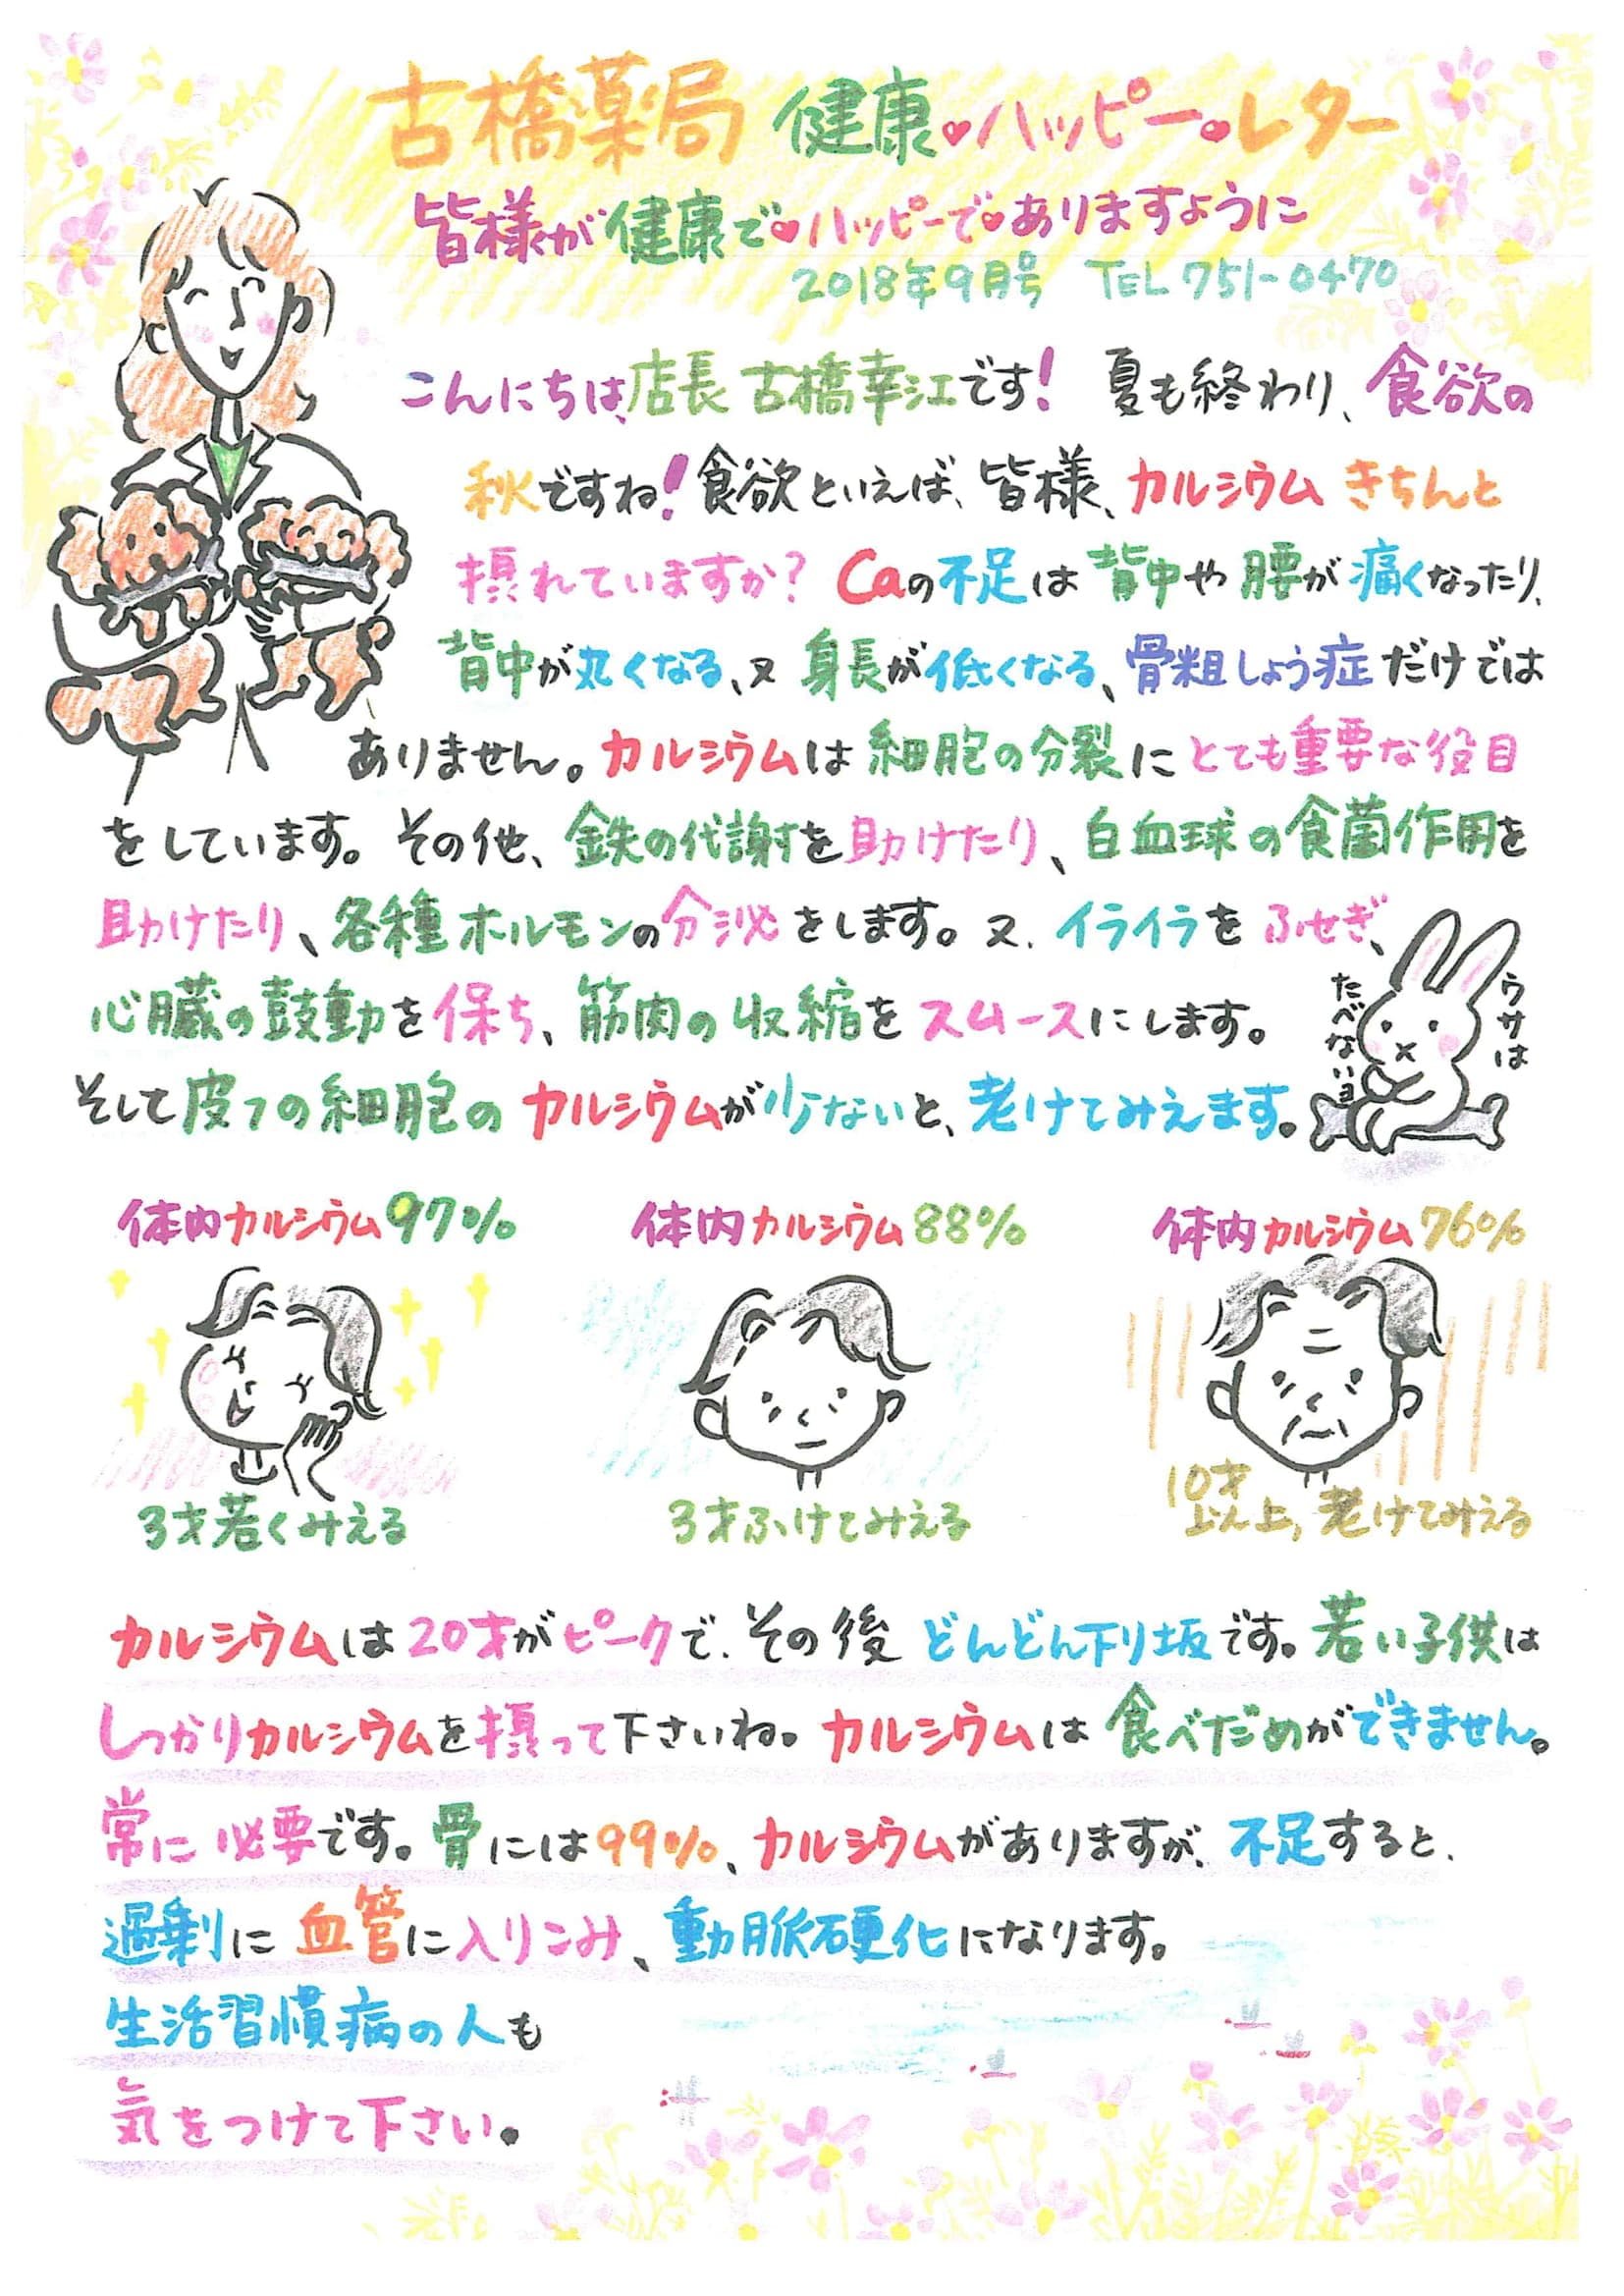 古橋薬局 健康♥ハッピー♥レター
皆様が健康で♥ハッピーで♥ありますように
2018年9月号 TEL 751-0470
こんにちは、店長 古橋幸江です! 夏も終わり、食欲の
秋ですね!食欲といえば、皆様、カルシウム きちんと
摂れていますか? Caの不足は 背中や 腰が 痛くなったり、
背中が丸くなる、又 身長が低くなる、骨粗しょう症だけでは
ありません。カルシウムは 細胞の分裂に とても重要な役目
をしています。その他、鉄の代謝を助けたり、白血球の食菌作用を
助けたり、各種ホルモンの分泌をします。又、イライラを ふせぎ、
心臓の鼓動を保ち、筋肉の収縮をスムースにします。
そして皮フの細胞の カルシウムが少ないと、老けてみえます。
ウサは
たべないョ
体内カルシウム97% 体内カルシウム88% 体内カルシウム76%
3才若くみえる 3才ふけてみえる 10才以上、老けてみえる
カルシウムは 20才がピークで、その後 どんどん下り坂です。若い子供は
しっかりカルシウムを摂って下さいね。カルシウムは 食べだめができません。
常に必要です。骨には99%、カルシウムがありますが、不足すると、
過剰に 血管に入りこみ、動脈硬化になります。
生活習慣病の人も
気をつけて下さい。